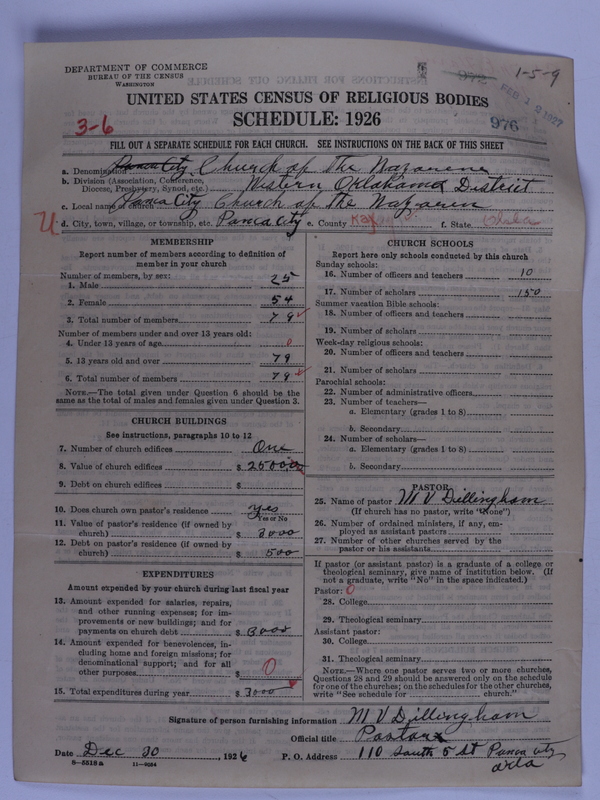 DEPARTMENT OF COMMERCE
BUREAU OF THE CENSUS
WASHINGTON
1-5-9
FEB 12 1927
976
UNITED STATES CENSUS OF RELIGIOUS BODIES
SCHEDULE: 1926
3-6
FILL OUT A SEPARATE SCHEDULE FOR EACH CHURCH. SEE INSTRUCTIONS ON THE BACK OF THIS SHEET
a. Denomination Ponca City Church of the Nazarene
b. Division (Association, Conference, Diocese, Presbytery, Synod, etc.) Western Oklahoma District
c. Local name of church Ponca City Church of the Nazaren
U
d. City, town, village, or township, etc. Ponca City e. County Kay f. State Okla
MEMBERSHIP
Report number of members according to definition of
member in your church
Number of members, by sex:
1. Male 25
2. Female 54
3. Total number of members 79
Number of members under and over 13 years old:
4. Under 13 years of age 0
5. 13 years old and over 79
6. Total number of members 79
NOTE.—The total given under Question 6 should be
same as the total of males and females given under Question 3.
CHURCH BUILDINGS
See instructions, paragraphs 10 to 12
7. Number of church edifices One
8. Value of church edifices $ 25000
9. Debt on church edifices $
10. Does church own pastor's residence yes
Yes or No
11. Value of pastor's residence (if owned by
church) $ 3000
12. Debt on pastor's residence (if owned by
church) $ 500
EXPENDITURES
Amount expended by your church during last fiscal year
13. Amount expended for salaries, repairs,
and other running expenses; for im-
provements or new buildings; and for
payments on church debt $ 3000
14. Amount expended for benevolences, in-
cluding home and foreign missions; for
denominational support; and for all
other purposes $ 0
15. Total expenditures during year $ 3000
CHURCH SCHOOLS
Report here only schools conducted by this church
Sunday schools:
16. Number of officers and teachers 10
17. Number of scholars 150
Summer vacation Bible schools:
18. Number of officers and teachers
19. Number of scholars
Week-day religious schools:
20. Number of officers and teachers
21. Number of scholars
Parochial schools:
22. Number of administrative officers
23. Number of teachers—
a. Elementary (grades 1 to 8)
b. Secondary
24. Number of scholars—
a. Elementary (grades 1 to 8)
b. Secondary
PASTOR
25. Name of pastor M V Dillingham
(If church has no pastor, write "None")
26. Number of ordained ministers, if any, em-
ployed as assistant pastors
27. Number of other churches served by the
pastor or his assistants
If pastor (or assistant pastor) is a graduate of a college or
theological seminary, give name of institution below. (If
not a graduate, write "No" in the space indicated.)
Pastor: 0
28. College
29. Theological seminary
Assistant pastor:
30. College
31. Theological seminary
NOTE.—Where one pastor serves two or more churches,
Questions 28 and 29 should be answered only on the schedule
for one of the churches; on the schedules for the other churches,
write "See schedule for church."
Signature of person furnishing information M V Dillingham
Official title Pastor
Date Dec 30, 1926 P. O. Address 110 South 5 St Ponca City
Okla
8-5518a 11-9064